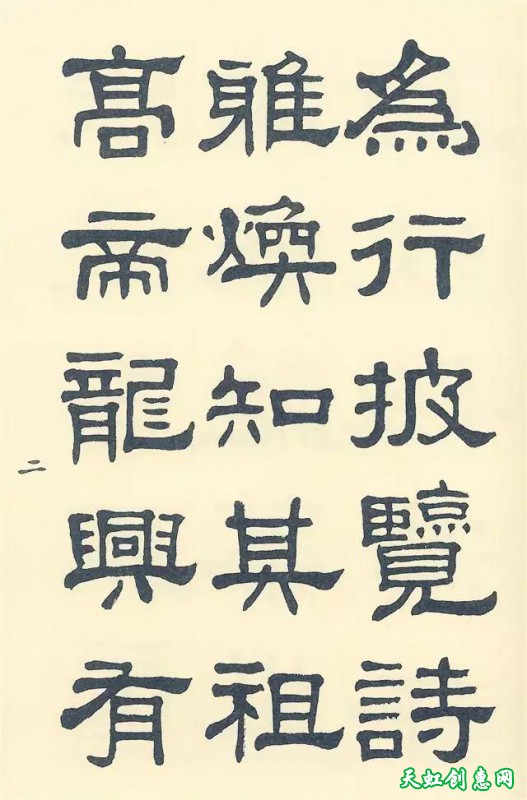 為行披覽詩
雅煥知其祖
高帝龍興有
二
天虹创惠网